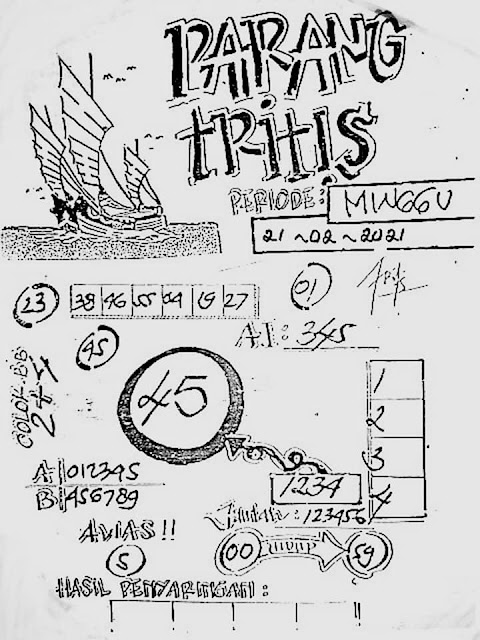 PARANG
TRITIS
PERIODE: MINGGU
21 ~ 02 ~ 2021
23
38 46 55 04 19 27
01
A.I: 345
45
COLOK.BB
2+4
45
1
2
3
4
A: 012345
B: 456789
1234
JUMLAH: 123456
AVIAS!!
00
59
5
HASIL PENYARINGAN: